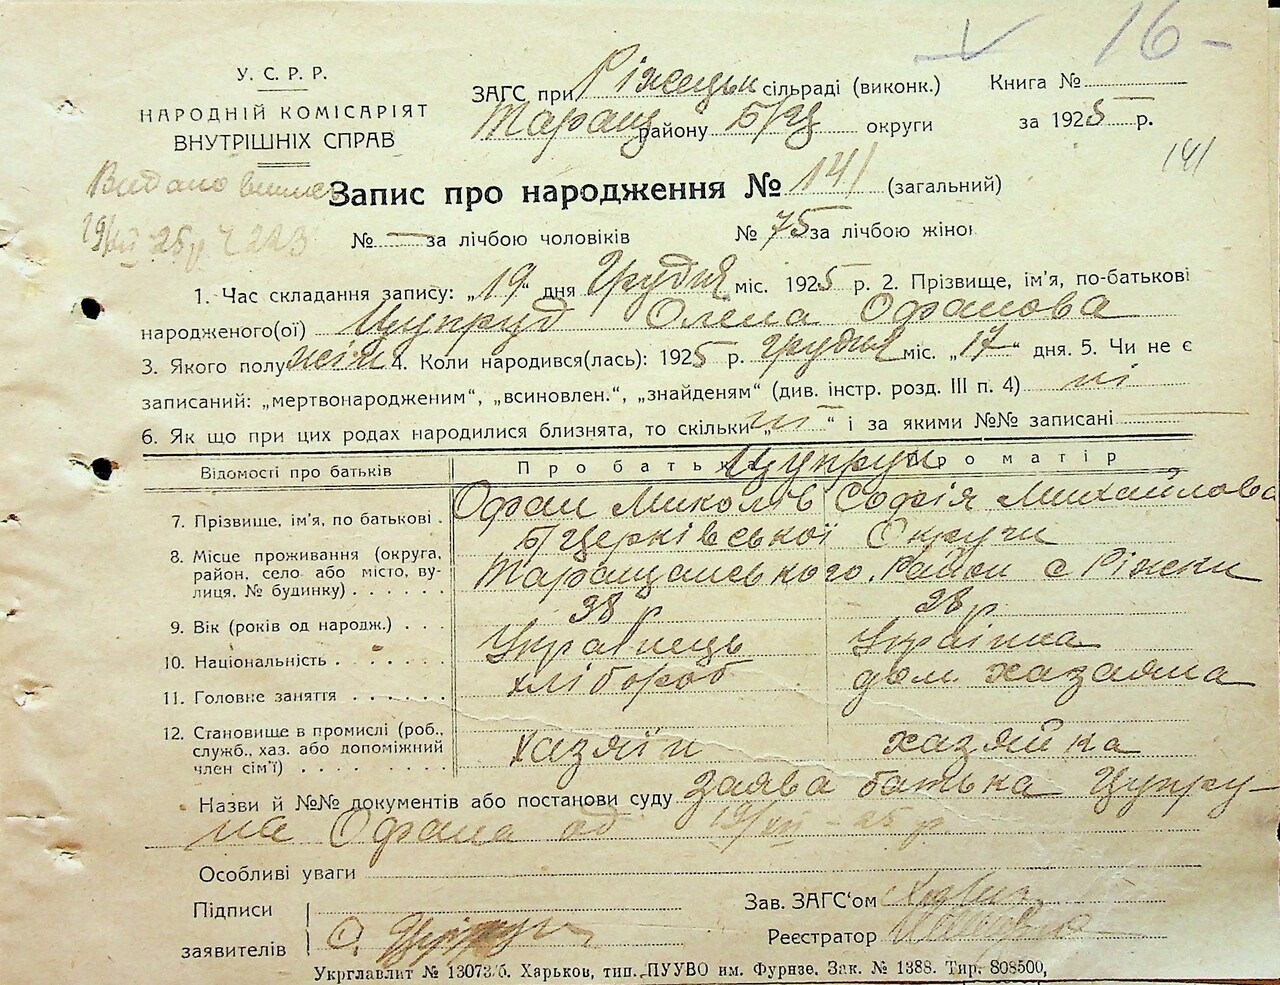 16 –
У. С. Р. Р.
НАРОДНІЙ КОМІСАРІЯТ
ВНУТРІШНІХ СПРАВ
ЗАГС при Ріжецьк сільраді (виконк.)
Таращ району Б/Ц округи
Книга №
за 1925 р.
141
Видано
19/XII 25 р Ч 223
Запис про народження № 141 (загальний)
№ — за лічбою чоловіків № 75 за лічбою жінок
1. Час складання запису: „19“ дня Грудня міс. 1925 р. 2. Прізвище, ім'я, по-батькові
народженого(ої) Цупруд Олена Офанова
3. Якого полу жін 4. Коли народився(лась): 1925 р. грудня міс. „17“ дня. 5. Чи не є
записаний: „мертвонародженим“, „всиновлен.“, „знайденям“ (див. інстр. розд. III п. 4) ні
6. Як що при цих родах народилися близнята, то скільки „ні“ і за якими №№ записані
Відомості про батьків Про батька Цупрун Про матір
7. Прізвище, ім'я, по батькові . Офан Миколів Софія Михайлова
8. Місце проживання (округа, район, село або місто, вулиця, № будинку) . . . . . . Б/Церківської Округи
Таращанського Район с Ріжки
9. Вік (років од народж.) . . . 38 р 38 р
10. Національність . . . . . . . Українець Українка
11. Головне заняття . . . . . . хлібороб дом. хазаяна
12. Становище в промислі (роб., служб., хаз. або допоміжний член сім'ї) . . . . . . . . хазяїн хазяйка
Назви й №№ документів або постанови суду Заява батька Цупру-
на Офана од 19/XII – 25 р.
Особливі уваги
Підписи
заявителів О. Цупрун
Зав. ЗАГС'ом
Реєстратор
Укрглавліт № 13073/б. Харьков, тип. ПУУВО им. Фурнзе. Зак. № 1388. Тир. 808500,